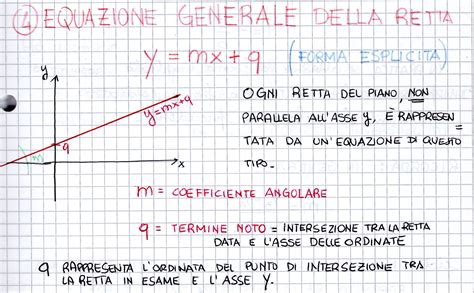 ④ EQUAZIONE GENERALE DELLA RETTA
y = mx + q (FORMA ESPLICITA)
y
y=mx+q
q
m
x
OGNI RETTA DEL PIANO, NON
PARALLELA ALL'ASSE y, È RAPPRESEN
TATA DA UN'EQUAZIONE DI QUESTO
TIPO.
m = COEFFICIENTE ANGOLARE
q = TERMINE NOTO = INTERSEZIONE TRA LA RETTA
DATA E L'ASSE DELLE ORDINATE
q RAPPRESENTA L'ORDINATA DEL PUNTO DI INTERSEZIONE TRA
LA RETTA IN ESAME E L'ASSE Y.